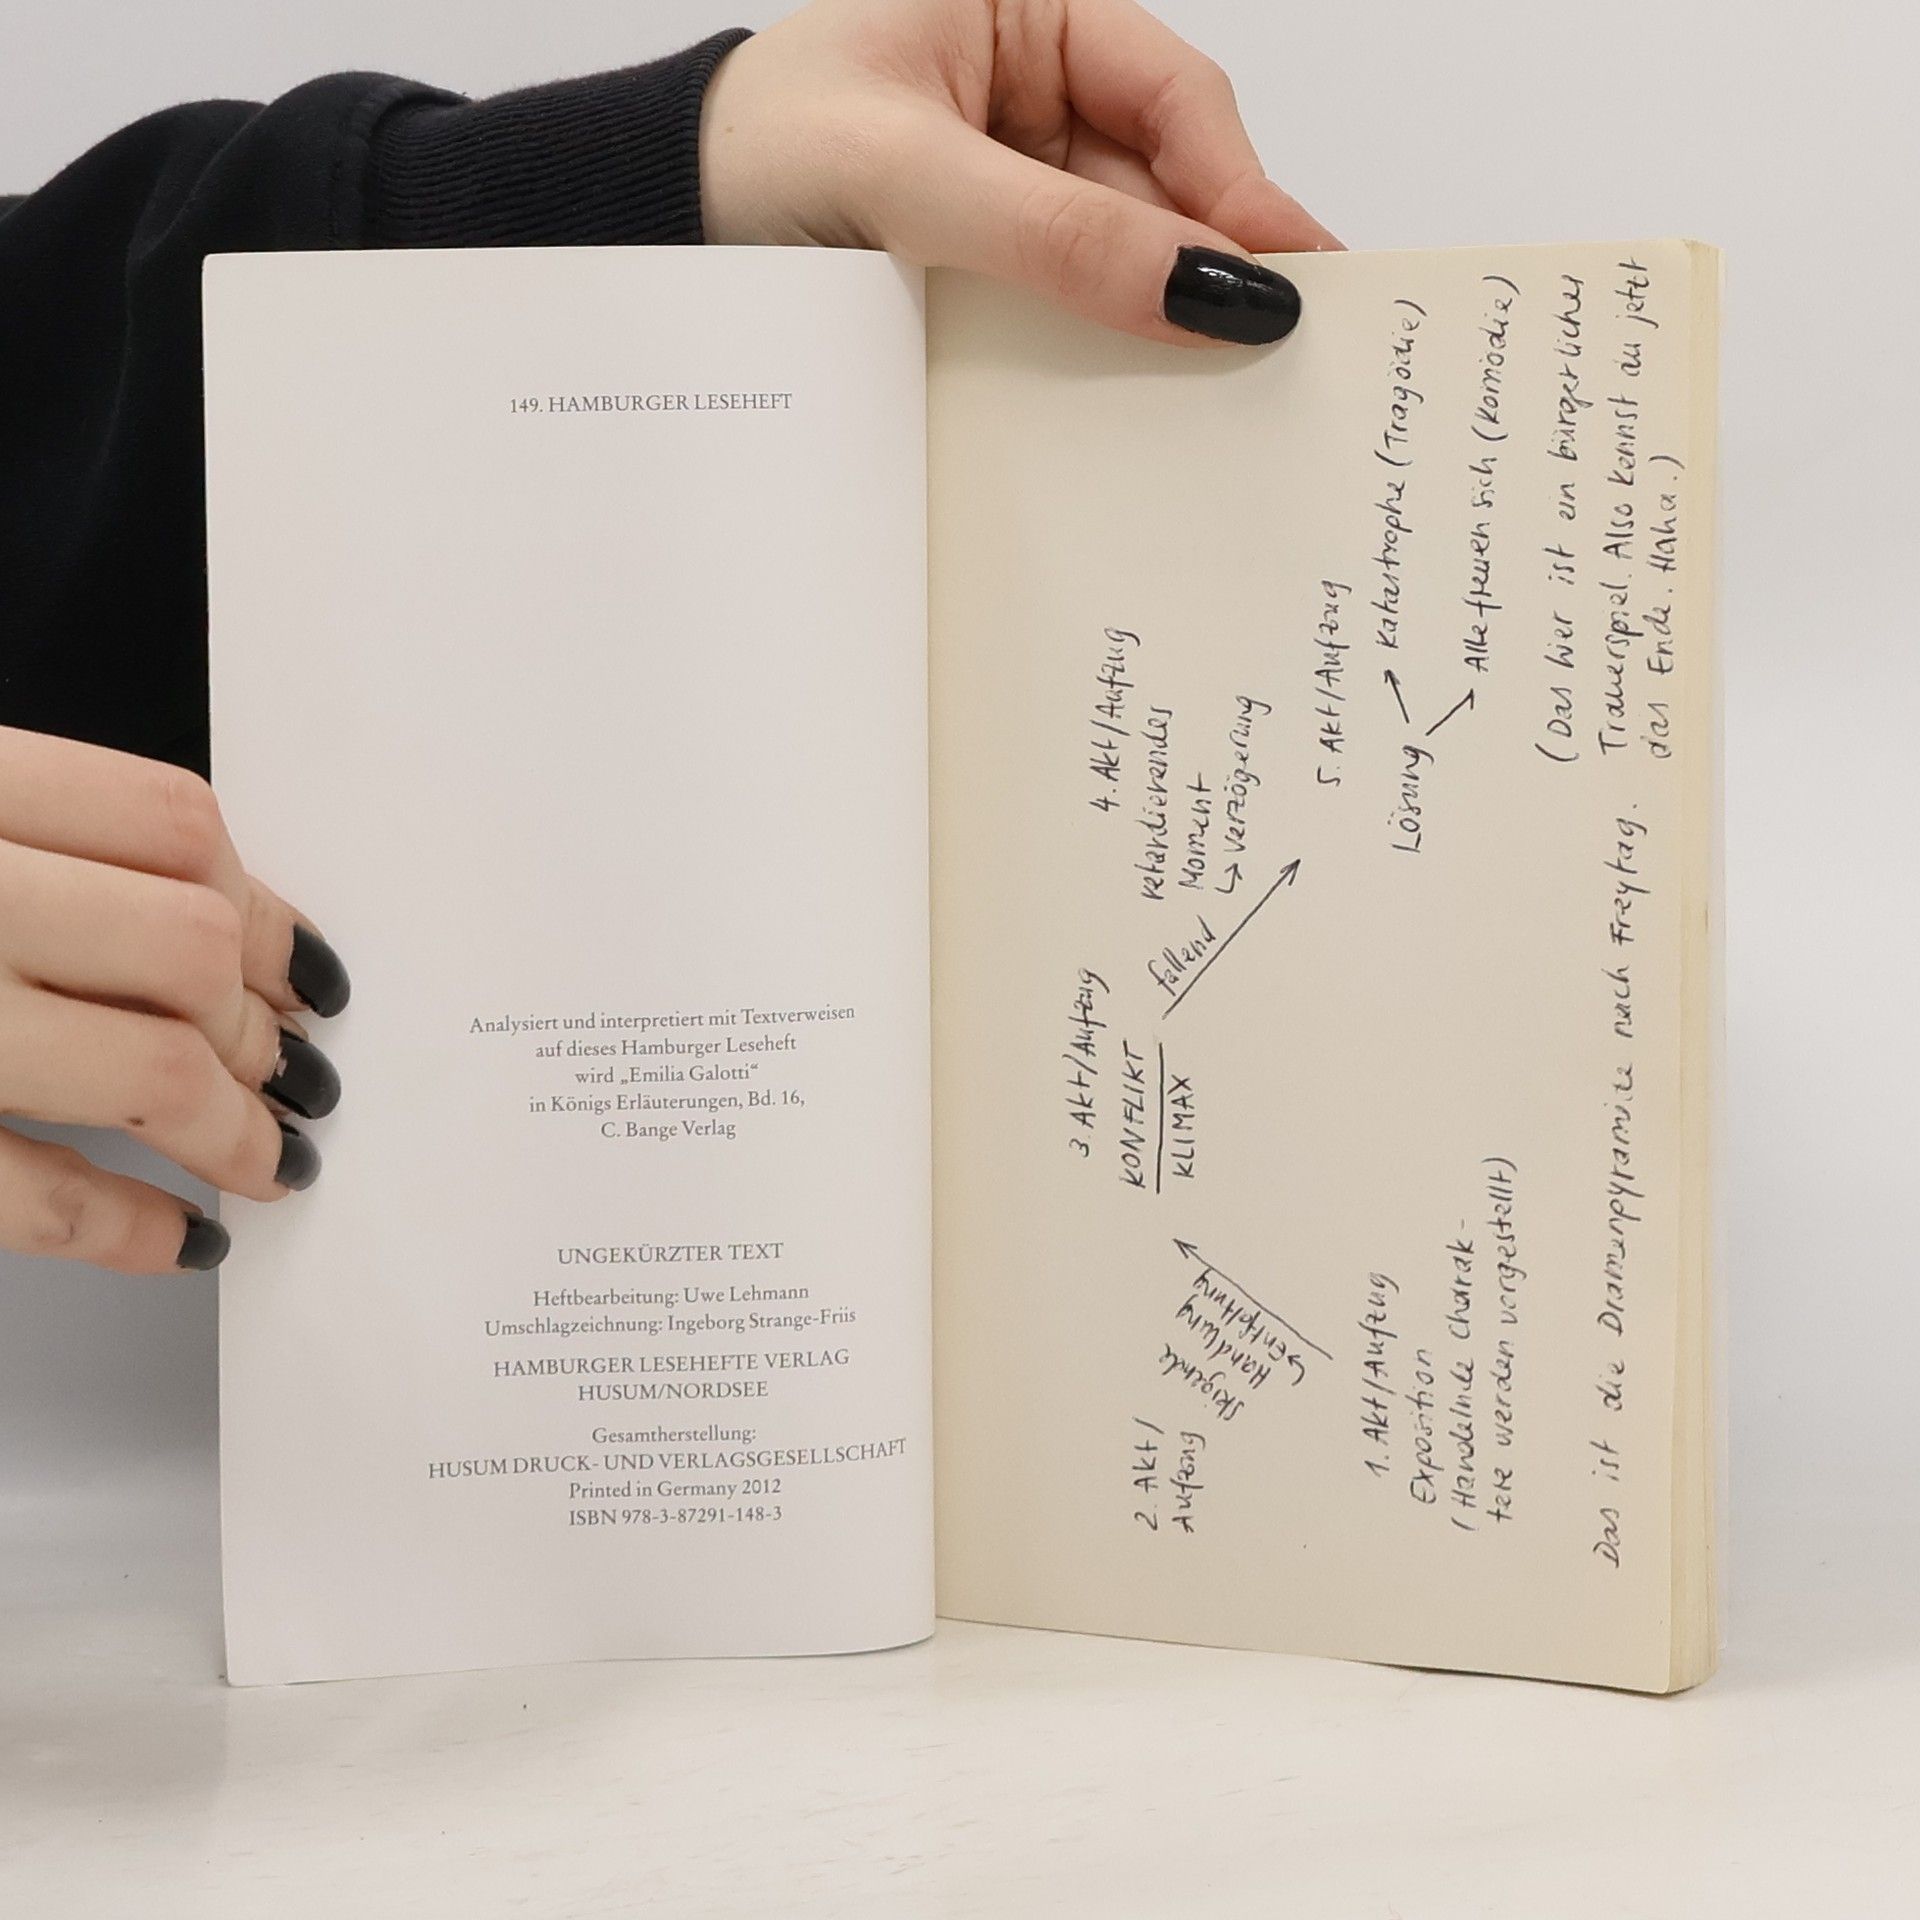 149. HAMBURGER LESEHEFT
Analysiert und interpretiert mit Textverweisen
auf dieses Hamburger Leseheft
wird „Emilia Galotti“
in Königs Erläuterungen, Bd. 16,
C. Bange Verlag
UNGEKÜRZTER TEXT
Heftbearbeitung: Uwe Lehmann
Umschlagzeichnung: Ingeborg Strange-Friis
HAMBURGER LESEHEFTE VERLAG
HUSUM/NORDSEE
Gesamtherstellung:
HUSUM DRUCK- UND VERLAGSGESELLSCHAFT
Printed in Germany 2012
ISBN 978-3-87291-148-3
3. Akt/Aufzug
KONFLIKT
KLIMAX
2. Akt/
Aufzug
Steigende
Handlung
↳ Entfaltung
fallend
4. Akt/Aufzug
retardierendes
Moment
↳ Verzögerung
1. Akt/Aufzug
Exposition
(Handelnde Charak-
tere werden vorgestellt)
5. Akt/Aufzug
Lösung → Katastrophe (Tragödie)
→ Alle freuen sich (Komödie)
(Das hier ist ein bürgerliches
Trauerspiel. Also kennst du jetzt
das Ende. Haha.)
Das ist die Dramenpyramide nach Freytag.